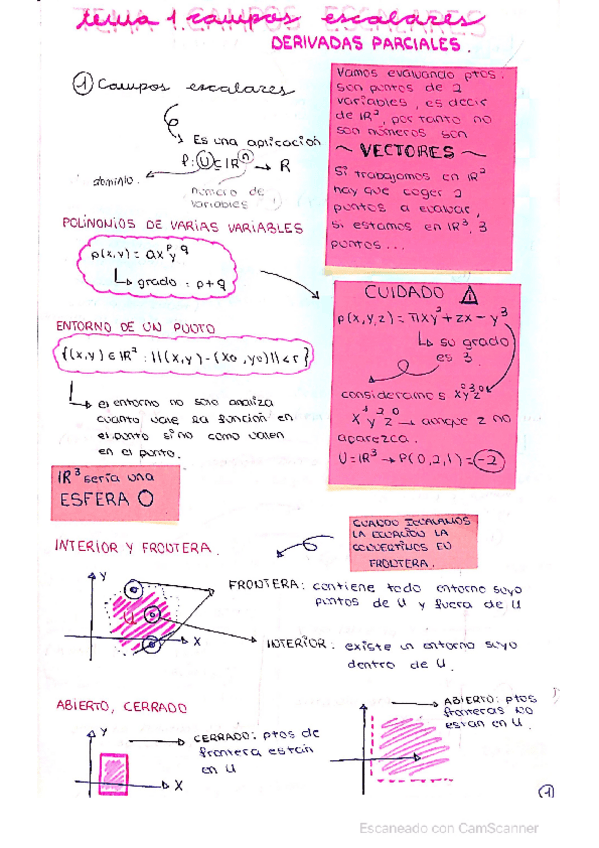 tema 1 campos escalares
DERIVADAS PARCIALES.
1 Campos escalares
Es una aplicación
f: U ⊆ ℝⁿ → R
dominio.
número de
variables
Vamos evaluando ptos.
son puntos de 2
variables, es decir
de ℝ², por tanto no
son números son
~ VECTORES ~
Si trabajamos en ℝ²
hay que coger 2
puntos a evaluar,
si estamos en ℝ³, 3
puntos...
POLINOMIOS DE VARIAS VARIABLES
p(x,y) = ax^p y^q
grado: p+q
CUIDADO ⚠
p(x,y,z) = πxy² + zx - y³
su grado
es 3.
consideramos x⁰y³z⁰
x¹ y² z⁰ → aunque z no
aparezca.
U = ℝ³ → P(0,2,1) = -2
ENTORNO DE UN PUNTO
{(x,y) ∈ ℝ² : ||(x,y) - (x0, y0)|| < r}
el entorno no solo analiza
cuanto vale la función en
el punto si no como valen
en el punto.
ℝ³ sería una
ESFERA O
CUANDO IGUALAMOS
LA ECUACIÓN LA
CONVERTIMOS EN
FRONTERA.
INTERIOR Y FRONTERA.
Y
U
X
FRONTERA: contiene todo entorno suyo
puntos de U y fuera de U
INTERIOR: existe un entorno suyo
dentro de U.
ABIERTO, CERRADO
Y
X
CERRADO: ptos de
frontera están
en U
ABIERTO: ptos
fronteras NO
están en U.
1
Escaneado con CamScanner